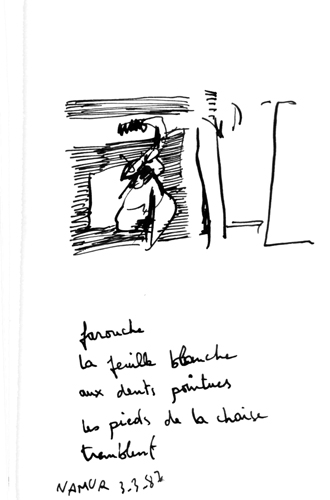 farouche
la feuille blanche
aux dents pointues
les pieds de la chaise
tremblent
NAMUR 3-3-87